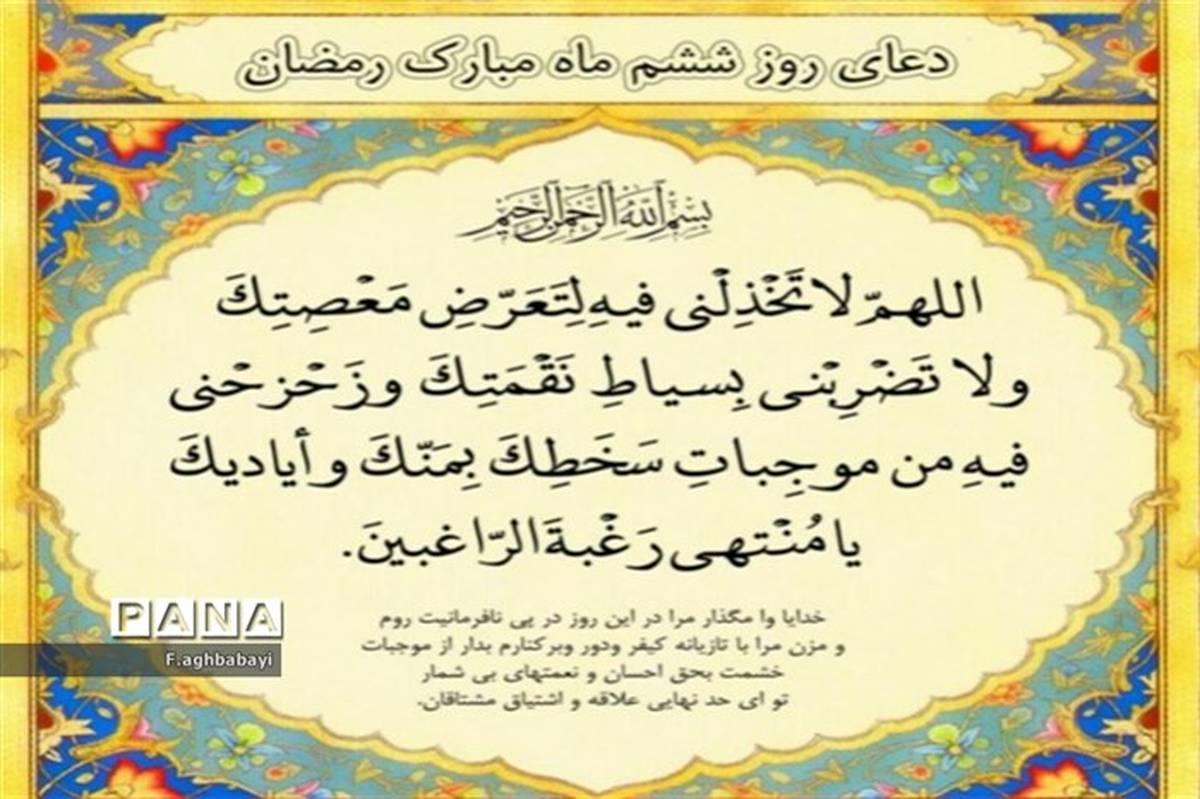 دعای روز ششم ماه مبارک رمضان
بِسْمِ اللهِ الرَّحْمنِ الرَّحیمِ
اللهمّ لا تَخْذِلْنی فیهِ لِتَعَرّضِ مَعْصِتِكَ
ولا تَضْرِبْنی بِسیاطِ نَقْمَتِكَ وزَحْزحْنی
فیهِ من موجِباتِ سَخَطِكَ بِمَنّكَ وأیادیكَ
یا مُنْتهی رَغْبةَ الرّاغبینَ.
خدایا وا مگذار مرا در این روز در پی نافرمانیت روم
و مزن مرا با تازیانه کیفر ودور وبرکنارم بدار از موجبات
خشمت بحق احسان و نعمتهای بی شمار
تو ای حد نهایی علاقه و اشتیاق مشتاقان.
PANA
F.aghbabayi